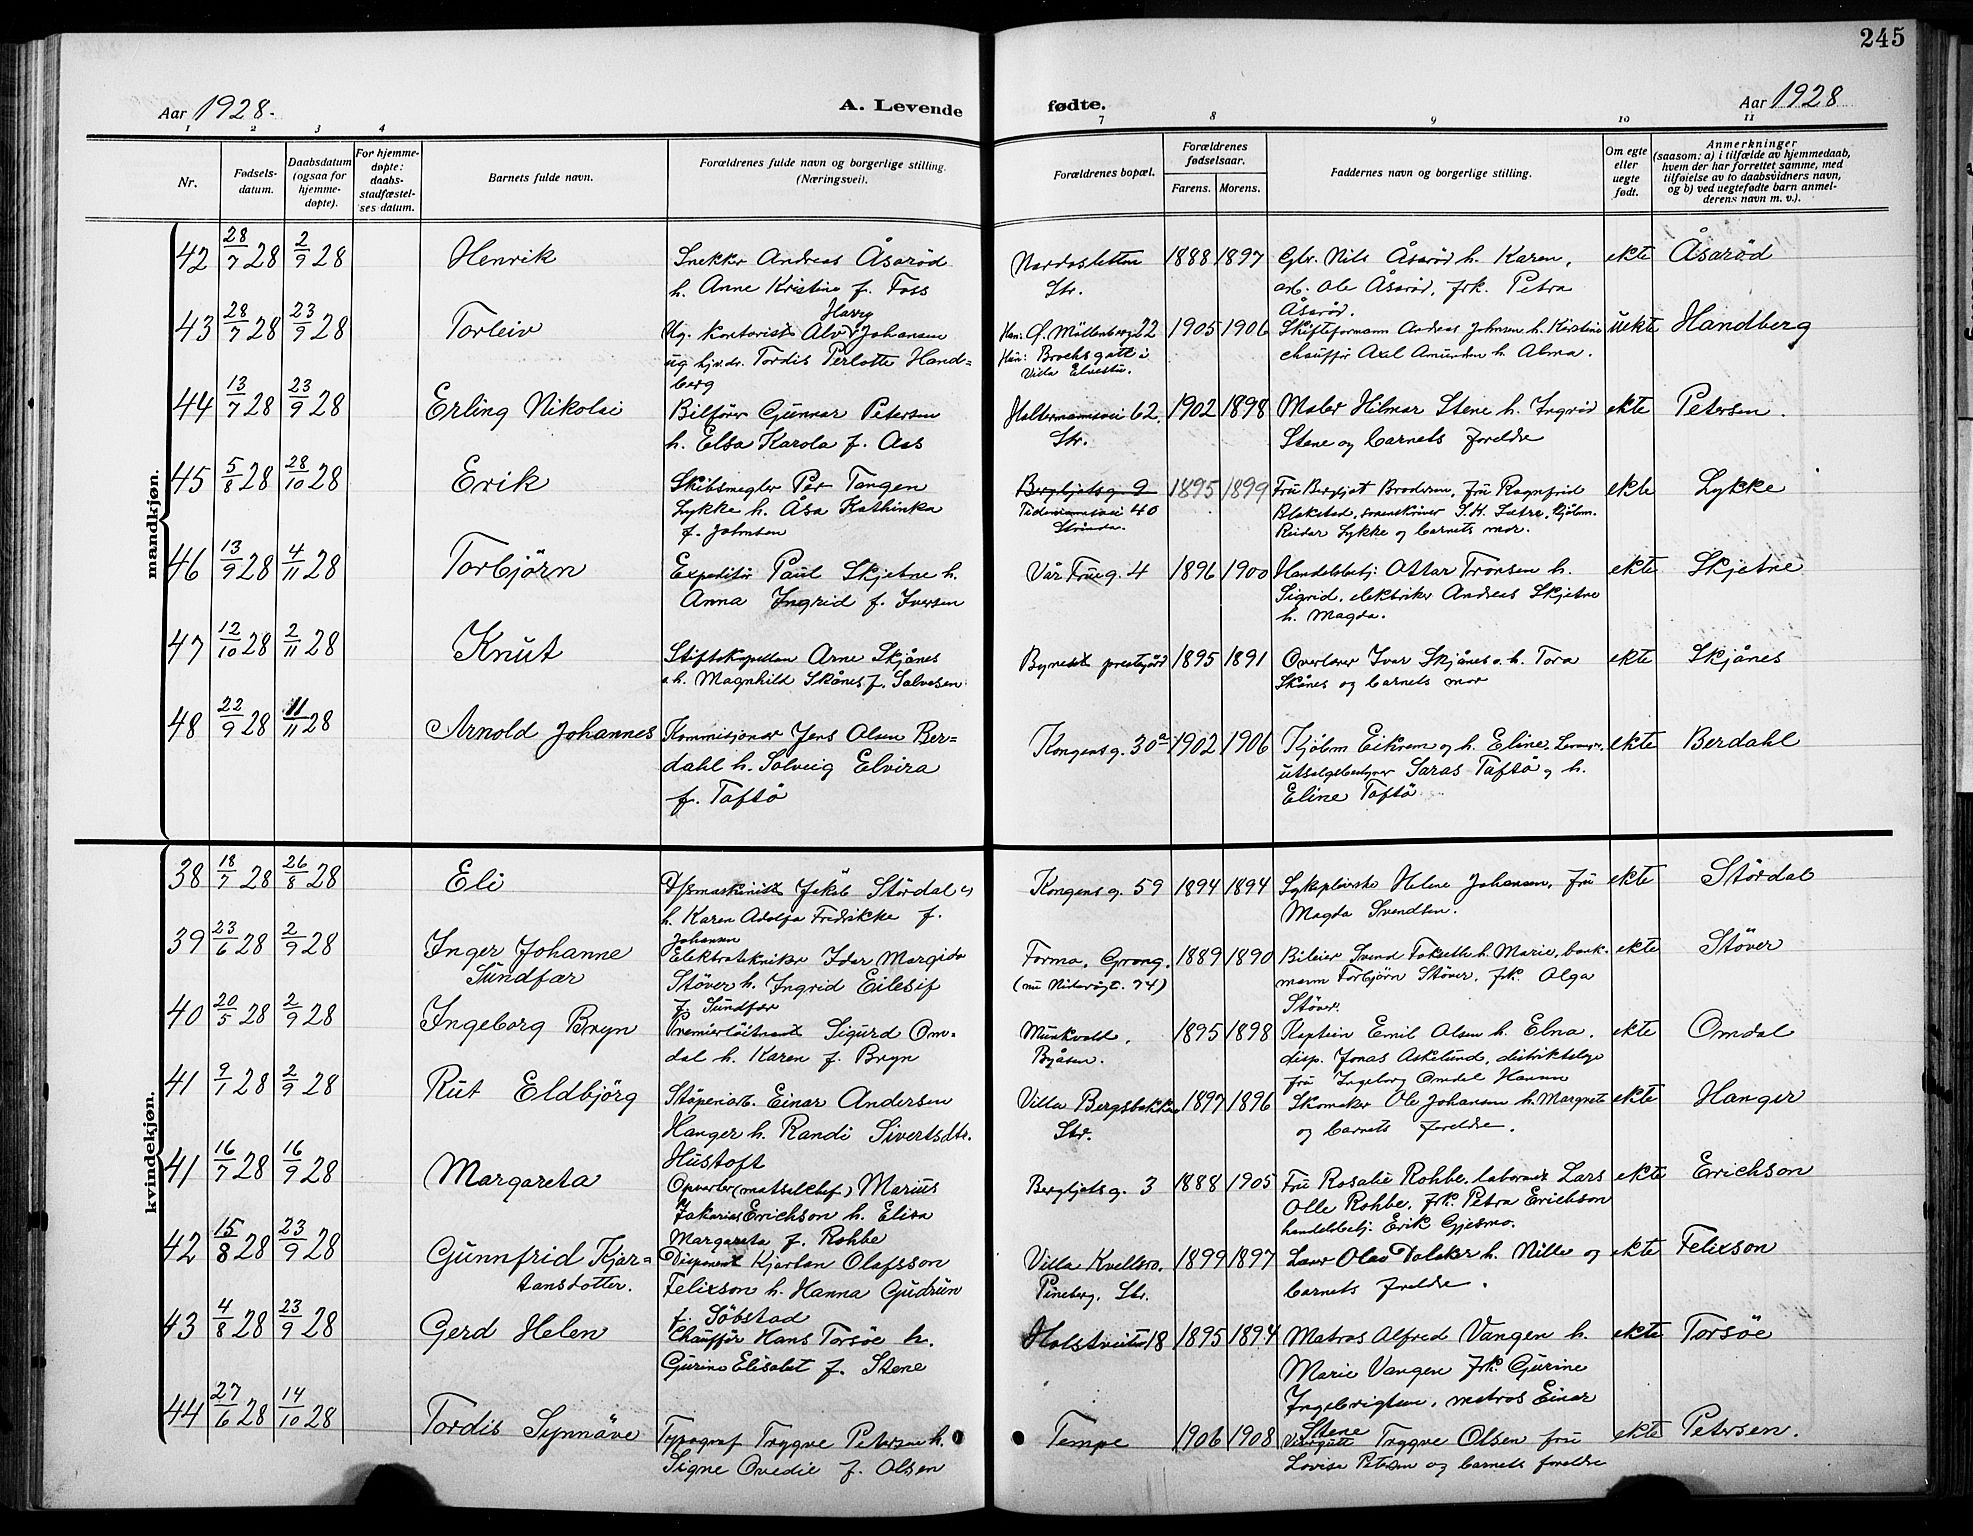 245
Aar 1928.
A. Levende
fødte.
Aar 1928
1 2 3 4
7 8 9 10 11
Nr.
Fødsels-
datum.
Daabsdatum
(ogsaa for
hjemme-
døpte).
For hjemme-
døpte:
daabs-
stadfæstel-
ses datum.
Barnets fulde navn.
Forældrenes fulde navn og borgerlige stilling.
(Næringsvei).
Forældrenes bopæl.
Forældrenes
fødselsaar.
Farens. Morens.
Faddernes navn og borgerlige stilling.
Om egte
eller
uegte
født.
Anmerkninger
(saasom: a) i tilfælde av hjemmedaab,
hvem der har forrettet samme, med
tilføielse av to daabsvidners navn,
og b) ved uegtefødte barn anmel-
derens navn m. v.).
mandkjøn.
42 28/7 28 2/9 28 Henrik
Snekker Andreas Åsarød
h. Anne Kristine f. Foss
Nardosletten
Str.
1888 1897
Gbr. Nils Åsarød h. Karen,
arb. Ole Åsarød, frk. Petra
Åsarød.
ekte Åsarød
43 28/7 28 23/9 28 Torleiv
Harry
Ug. kontorist Alv Johansen
ug hj.v.dr. Tordis Perlotte Hand-
berg
Han: Ø. Möllenberg 22
Hun: Brochsgate i
Villa Elvestu.
1905 1906
Skifteformann Andreas Johnsen h. Kirstine
chauffør Axel Amundsen h. Alma.
uekt Handberg
44 13/7 28 23/9 28 Erling Nikolai
Bilfører Gunnar Petersen
h. Elsa Karola f. Aas
Haltermannsvei 62.
Str.
1902 1898
Maler Hilmar Stene h. Ingrid
Stene og barnets foreldre
ekte Petersen.
45 5/8 28 28/10 28 Erik
Skibsmegler Per Tangen
Lykke h. Åsa Kathinka
f. Johnsen
Bergljotsg. 9
Tidemannsvei 40
Strinda.
1895 1899
Fru Bergljot Brodersen, fru Ragnfrid
Blakstad, sorenskriver S.H. Sætre, kjøbm.
Reidar Lykke og barnets mor.
ekte Lykke
46 13/9 28 4/11 28 Torbjörn
Expeditör Paul Skjetne h.
Anna Ingrid f. Iversen
Vår Frueg. 4
1896 1900
Handelsbetj. Ottar Tronsen h.
Sigrid, elektriker Andreas Skjetne
h. Magda.
ekte Skjetne
47 12/10 28 2/11 28 Knut
Stiftskapellan Arne Skjånes
o.h. Magnhild Skånes f. Salvesen
Bynesset prestegård
1895 1891
Overlærer Ivar Skjånes o. h. Tora
Skånes og barnets mor
ekte Skjånes
48 22/9 28 11/11 28 Arnold Johannes
Kommisjonær Jens Olsen Ber-
dahl h. Solveig Elvira
f. Taftö
Kongensg. 30a
1902 1906
Kjøbm Eikrem og h. Eline,
utsalgsbestyrer Saras Taftö og h.
Eline Taftö
ekte Berdahl
kvindekjøn.
38 18/7 28 26/8 28 Eli
D/smaskinist Jakob Stördal o
h. Karen Adolfa Fredrikke f.
Johansen
Kongensg. 59
1894 1894
Sykepleierske Helene Johansen, Fru
Magda Svendsen.
ekte Stördal
39 23/6 28 2/9 28 Inger Johanne
Sundfær
Elektrotekniker Idar Margido
Stöver h. Ingrid Eilesif
f. Sundfær
Formo, Grong.
(nu Nidarvgt. 74)
1889 1890
Bileier Svend Fokseth h. Marie, bank-
mann Torbjørn Stöver, frk. Olga
Stöver.
ekte Stöver
40 20/5 28 2/9 28 Ingeborg Bryn
Premierlöitnant Sigurd Om-
dal h. Karen f. Bryn
Munkvold,
Byåsen.
1895 1898
Kaptein Emil Olsen h. Elna,
disp. Jonas Askelund, distriktslege
fru Ingeborg Omdal Hansen
ekte Omdal
41 9/1 28 2/9 28 Rut Eldbjörg
Støperiarb. Einar Andersen
Hanger h. Randi Sivertsdtr.
Hustoft
Villa Bergsbakken
Str.
1897 1896
Skomaker Ole Johansen h. Margrete
og barnets foreldre.
ekte Hanger
41 16/7 28 16/9 28 Margareta
Opvarter (matselchef) Marius
Zakarias Erichson h. Elisa
Margareta f. Rohbe
Bergljotsg. 3
1888 1905
Fru Rosalie Rohbe, laborant Lars
Olle Rohbe, frk. Petra Erichson
handelsbetj. Erik Gjesmo.
ekte Erichson
42 15/8 28 23/9 28 Gunnfrid Kjar-
tansdotter.
Disponent Kjartan Olafsson
Felixson h. Hanna Gudrun
f. Söbstad
Villa Kvellsro,
Pineberg, Str.
1899 1897
Lærer Olav Dalaker h. Nille og
barnets foreldre.
ekte Felixson
43 4/8 28 23/9 28 Gerd Helen
Chauffør Hans Torsöe h.
Gurine Elisabet f. Stene
Holstveita 18
1895 1894
Matros Alfred Vangen h.
Marie Vangen frk. Gurine
Ingebrigtsen, matros Einar
Stene
ekte Torsöe
44 27/6 28 14/10 28 Tordis Synnöve
Typograf Trygve Petersen h.
Signe Ovedie f. Olsen
Tempe
1906 1908
Visergutt Trygve Olsen fru
Lovise Petersen og barnets foreldre
ekte Petersen.